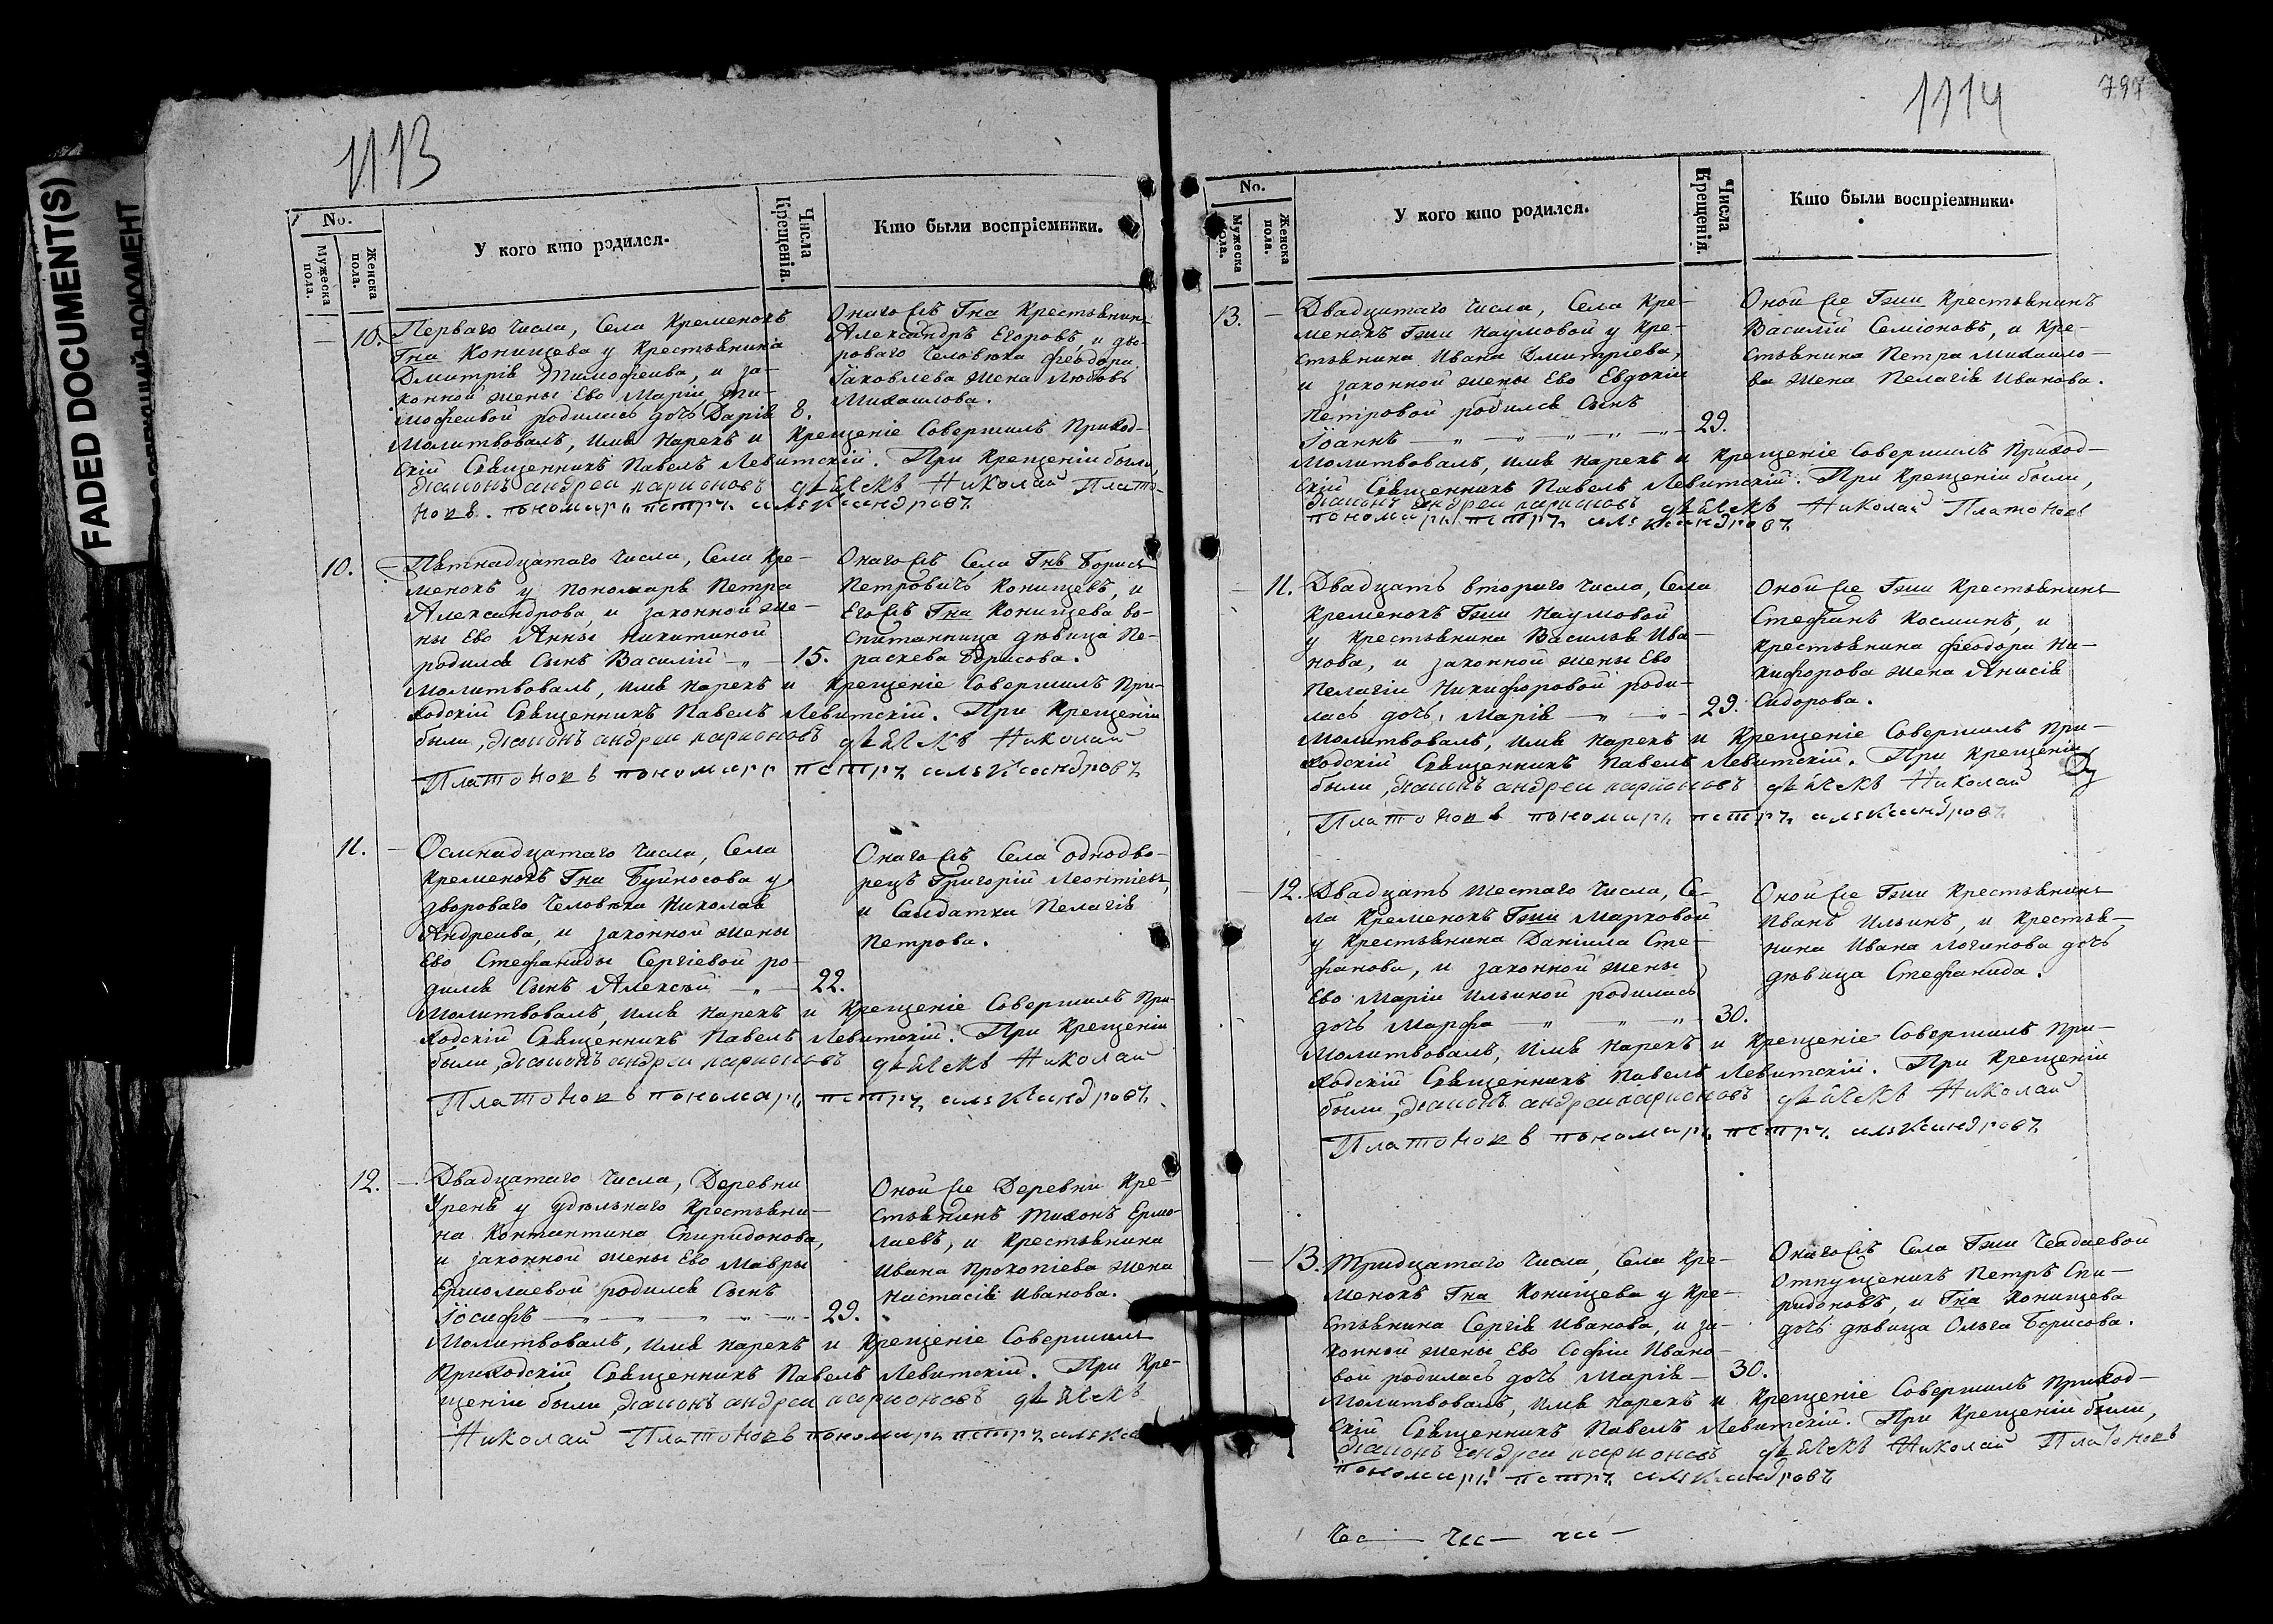 FADED DOCUMENT(S)
1113
No.
Мужеска пола.
Женска пола.
У кого кто родился.
Числа Крещенія.
Кто были воспріемники.
10.
Перваго числа, Села Кременокъ
Гна Конищева у крестьянина
Дмитрія Тимофеива, и за-
конной жены Ево Маріи Ти-
мофеивой родилась дочь Дарія 8.
Онаго же Гна Крестьянинъ
Александръ Егоровъ, и дво-
роваго Человѣка Феодора
Іаковлева жена Любовь
Михаилова.
Молитвовалъ, имя нарекъ и Крещеніе Совершилъ Приход-
скій Священникъ Павелъ Левитскій. При Крещеніи были,
діаконъ андреи ларионовъ дьячекъ Николай Плато-
новъ. пономарь петръ александровъ
10.
Пятнадцатаго числа, Села Кре-
менокъ у пономаря Петра
Александрова, и законной же-
ны Ево Анны Никитиной
родился Сынъ Василій 15.
Онаго же Села Гнъ Борисъ
Петровичъ Конищевъ, и
Его же Гна Конищева во-
спитанница дѣвица Пе-
раскева Борисова.
Молитвовалъ, имя нарекъ и Крещеніе Совершилъ При-
ходскій Священникъ Павелъ Левитскій. При Крещеніи
были, діаконъ андреи ларионовъ дьячекъ Николай
Платоновъ пономарь петръ александровъ
11.
Осмнадцатаго числа, Села
Кременокъ Гна Буйносова у
двороваго Человѣка Николая
Андреива, и законной жены
Ево Стефаниды Сергіевой ро-
дился Сынъ Алексѣй 22.
Онаго же Села однодво-
рецъ Григорій Леонтіевъ,
и Салдатка Пелагія
Петрова.
Молитвовалъ, имя нарекъ и Крещеніе Совершилъ При-
ходскій Священникъ Павелъ Левитскій. При Крещеніи
были, діаконъ андреи ларионовъ дьячекъ Николай
Платоновъ пономарь петръ александровъ
12.
Двадцатаго числа, Деревни
Урень у удѣльнаго Крестьяни-
на Контантина Спиридонова,
и законной жены Ево Мавры
Ермолаевой родился Сынъ
Іосифъ 29.
Оной же Деревни Кре-
стьянинъ Тихонъ Ермо-
лаевъ, и Крестьянина
Ивана Прокопіева жена
Настасія Иванова.
Молитвовалъ, имя нарекъ и Крещеніе Совершилъ
Приходскій Священникъ Павелъ Левитскій. При Кре-
щеніи были, діаконъ андреи ларионовъ дьячекъ
Николай Платоновъ пономарь петръ алекса
1114
797
No.
Мужеска пола.
Женска пола.
У кого кто родился.
Числа Крещенія.
Кто были воспріемники.
13.
Двадцатаго числа, Села Кре-
менокъ Гжи Наумовой у Кре-
стьянина Ивана Дмитріева,
и законной жены Ево Евдокіи
Петровой родился Сынъ
Іоаннъ 29.
Оной же Гжи Крестьянинъ
Василій Семіоновъ, и Кре-
стьянина Петра Михаило-
ва жена Пелагія Иванова.
Молитвовалъ, имя нарекъ и Крещеніе Совершилъ Приход-
скій Священникъ Павелъ Левитскій. При Крещеніи были,
діаконъ андреи ларионовъ дьячекъ Николай Платоновъ
пономарь петръ александровъ
11.
Двадцать втораго числа, Села
Кременокъ Гжи Наумовой
у Крестьянина Василья Ива-
нова, и законной жены Ево
Пелагіи Никифоровой роди-
лась дочь Марія 29.
Оной же Гжи Крестьянинъ
Стефанъ Косминъ, и
Крестьянина Феодора Ни-
кифорова жена Анисія
Сидорова.
Молитвовалъ, имя нарекъ и Крещеніе Совершилъ При-
ходскій Священникъ Павелъ Левитскій. При Крещеніи
были, діаконъ андреи ларионовъ дьячекъ Николай
Платоновъ пономарь петръ александровъ
12.
Двадцать шестаго числа, Се-
ла Кременокъ Гжи Марковой
у Крестьянина Даніила Сте-
фанова, и законной жены
Ево Маріи Ильиной родилась
дочь Марфа 30.
Оной же Гжи Крестьянинъ
Иванъ Ильинъ, и Крестья-
нина Ивана Логинова дочь
дѣвица Стефанида.
Молитвовалъ, имя нарекъ и Крещеніе Совершилъ При-
ходскій Священникъ Павелъ Левитскій. При Крещеніи
были, діаконъ андреи ларионовъ дьячекъ Николай
Платоновъ пономарь петръ александровъ
13.
Тридцатаго числа, Села Кре-
менокъ Гна Конищева у Кре-
стьянина Сергія Иванова, и за-
конной жены Ево Софіи Ивано-
вой родилась дочь Марія 30.
Онаго же Села Гжи Чеадаевой
Отпущеникъ Петръ Спи-
ридоновъ, и Гна Конищева
дочь дѣвица Ольга Борисова.
Молитвовалъ, имя нарекъ и Крещеніе Совершилъ Приход-
скій Священникъ Павелъ Левитскій. При Крещеніи были,
діаконъ андреи ларионовъ дьячекъ Николай Платоновъ
пономарь петръ александровъ